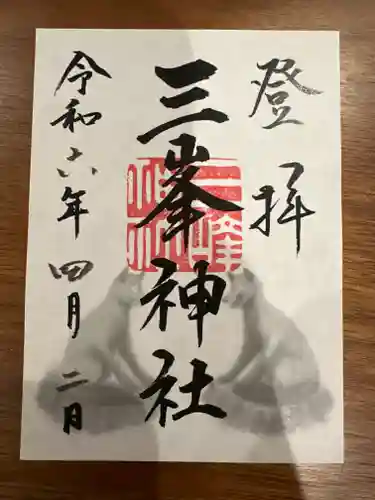 登拝
三峯神社
令和六年四月二日